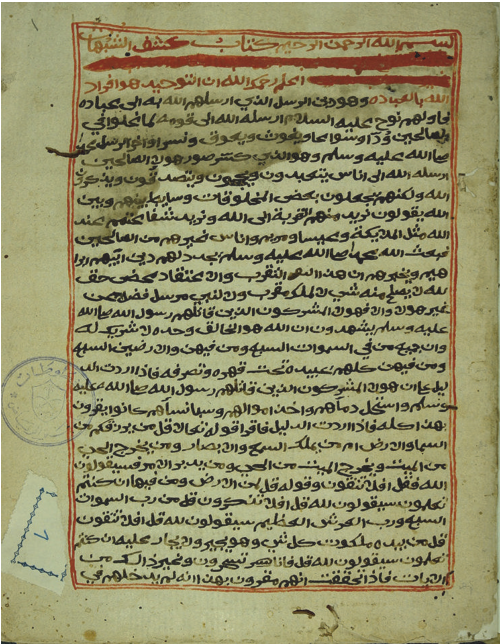 بسم الله الرحمن الرحيم كتاب كشف الشبهات
اعلم رحمك الله ان التوحيد هو افراد
الله بالعباده وهو دين الرسل الذي ارسلهم الله به الى عباده
فاولهم نوح عليه السلام ارسله الله الى قومه لما غلوا في
الصالحين ودا وسواعا ويغوث ويعوق ونسرا واخر الرسل محمد
صلا الله عليه وسلم وهو الذي كسر صور هولاء الصالحين
ارسله الله الى اناس يتعبدون ويحجون ويتصدقون ويذكرون
الله ولكنهم يجعلون بعض المخلوقات وسايط بينهم وبين
الله يقولون نريد منهم القربة الى الله ونريد شفاعتهم عند
الله مثل الملايكة وعيسا ومريم واناس غيرهم من الصالحين
فبعث الله محمدا صلا الله عليه وسلم يجدد لهم دين ابيهم ابرا
هيم ويخبرهم ان هذا التقرب والاعتقاد محض حق
لله لا يصلح منه شي لا لملك مقرب ولا لنبي مرسل فضلا عن
غيرهما والا فهولاء المشركون الذين قاتلهم رسول الله صلا الله
عليه وسلم يشهدون ان الله هو الخالق وحده لا شريك له
وان جميع من في السموات السبع ومن فيهن والارضين السبع
ومن فيهن كلهم عبيده تحت قهره وتصرفه فاذا اردت الد
ليل على ان هولاء المشركون الذين قاتلهم رسول الله صلا الله عليه
وسلم واستحل دماهم واخذ اموالهم وسبا نساهم كانوا يقرون
بهذا كله فاذا اردت الدليل فاقرا قوله تعالى قل من يرزقكم من
السما والارض ام من يملك السمع والابصار ومن يخرج الحي
من الميت ويخرج الميت من الحي ومن يدبر الامر فسيقولون
الله فقل افلا تتقون وقوله قل لمن الارض ومن فيها ان كنتم
تعلمون سيقولون لله قل افلا تذكرون قل من رب السموات
السبع ورب العرش العظيم سيقولون لله قل افلا تتقون
قل من بيده ملكوت كل شي وهو يجير ولا يجار عليه ان كنتم
تعلمون سيقولون لله قل فانا تسحرون وغير ذالك من
الايات فاذا تحققت انهم مقرون بهذا وانه لم يدخلهم في
١